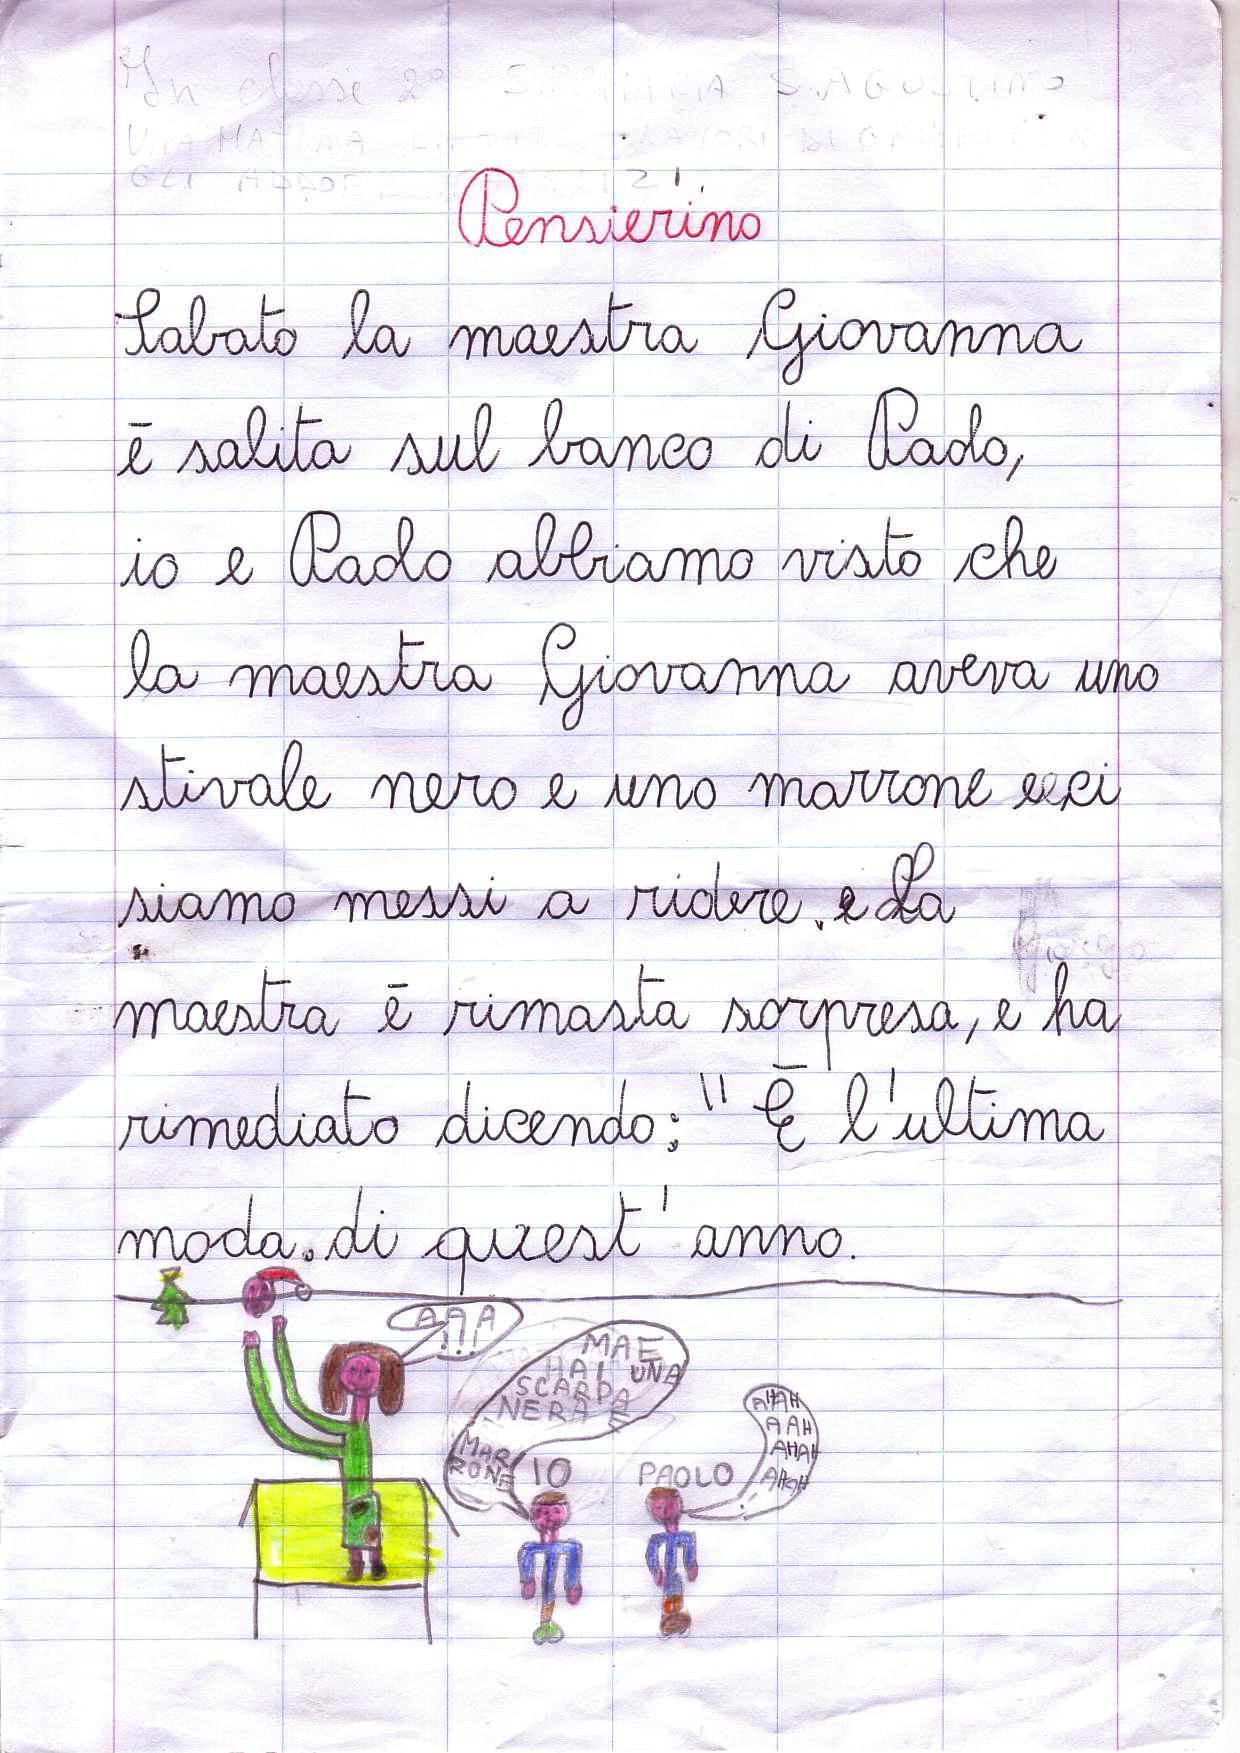 In classe 2° S. AGOSTINO
UNA MATTINA LAVORI DI
GLI
Pensierino
Sabato la maestra Giovanna
ē salita sul banco di Paolo,
io e Paolo abbiamo visto che
la maestra Giovanna aveva uno
stivale nero e uno marrone e ci
siamo messi a ridere. e La
maestra ē rimasta sorpresa, e ha
rimediato dicendo: "Ē l'ultima
moda di quest'anno.
AAA
!!!
MA E
HAI UNA
SCARPA
NERA E
MAR
RONE
IO
PAOLO
AHAH
AAH
AHAH
AHAH
Giorgio